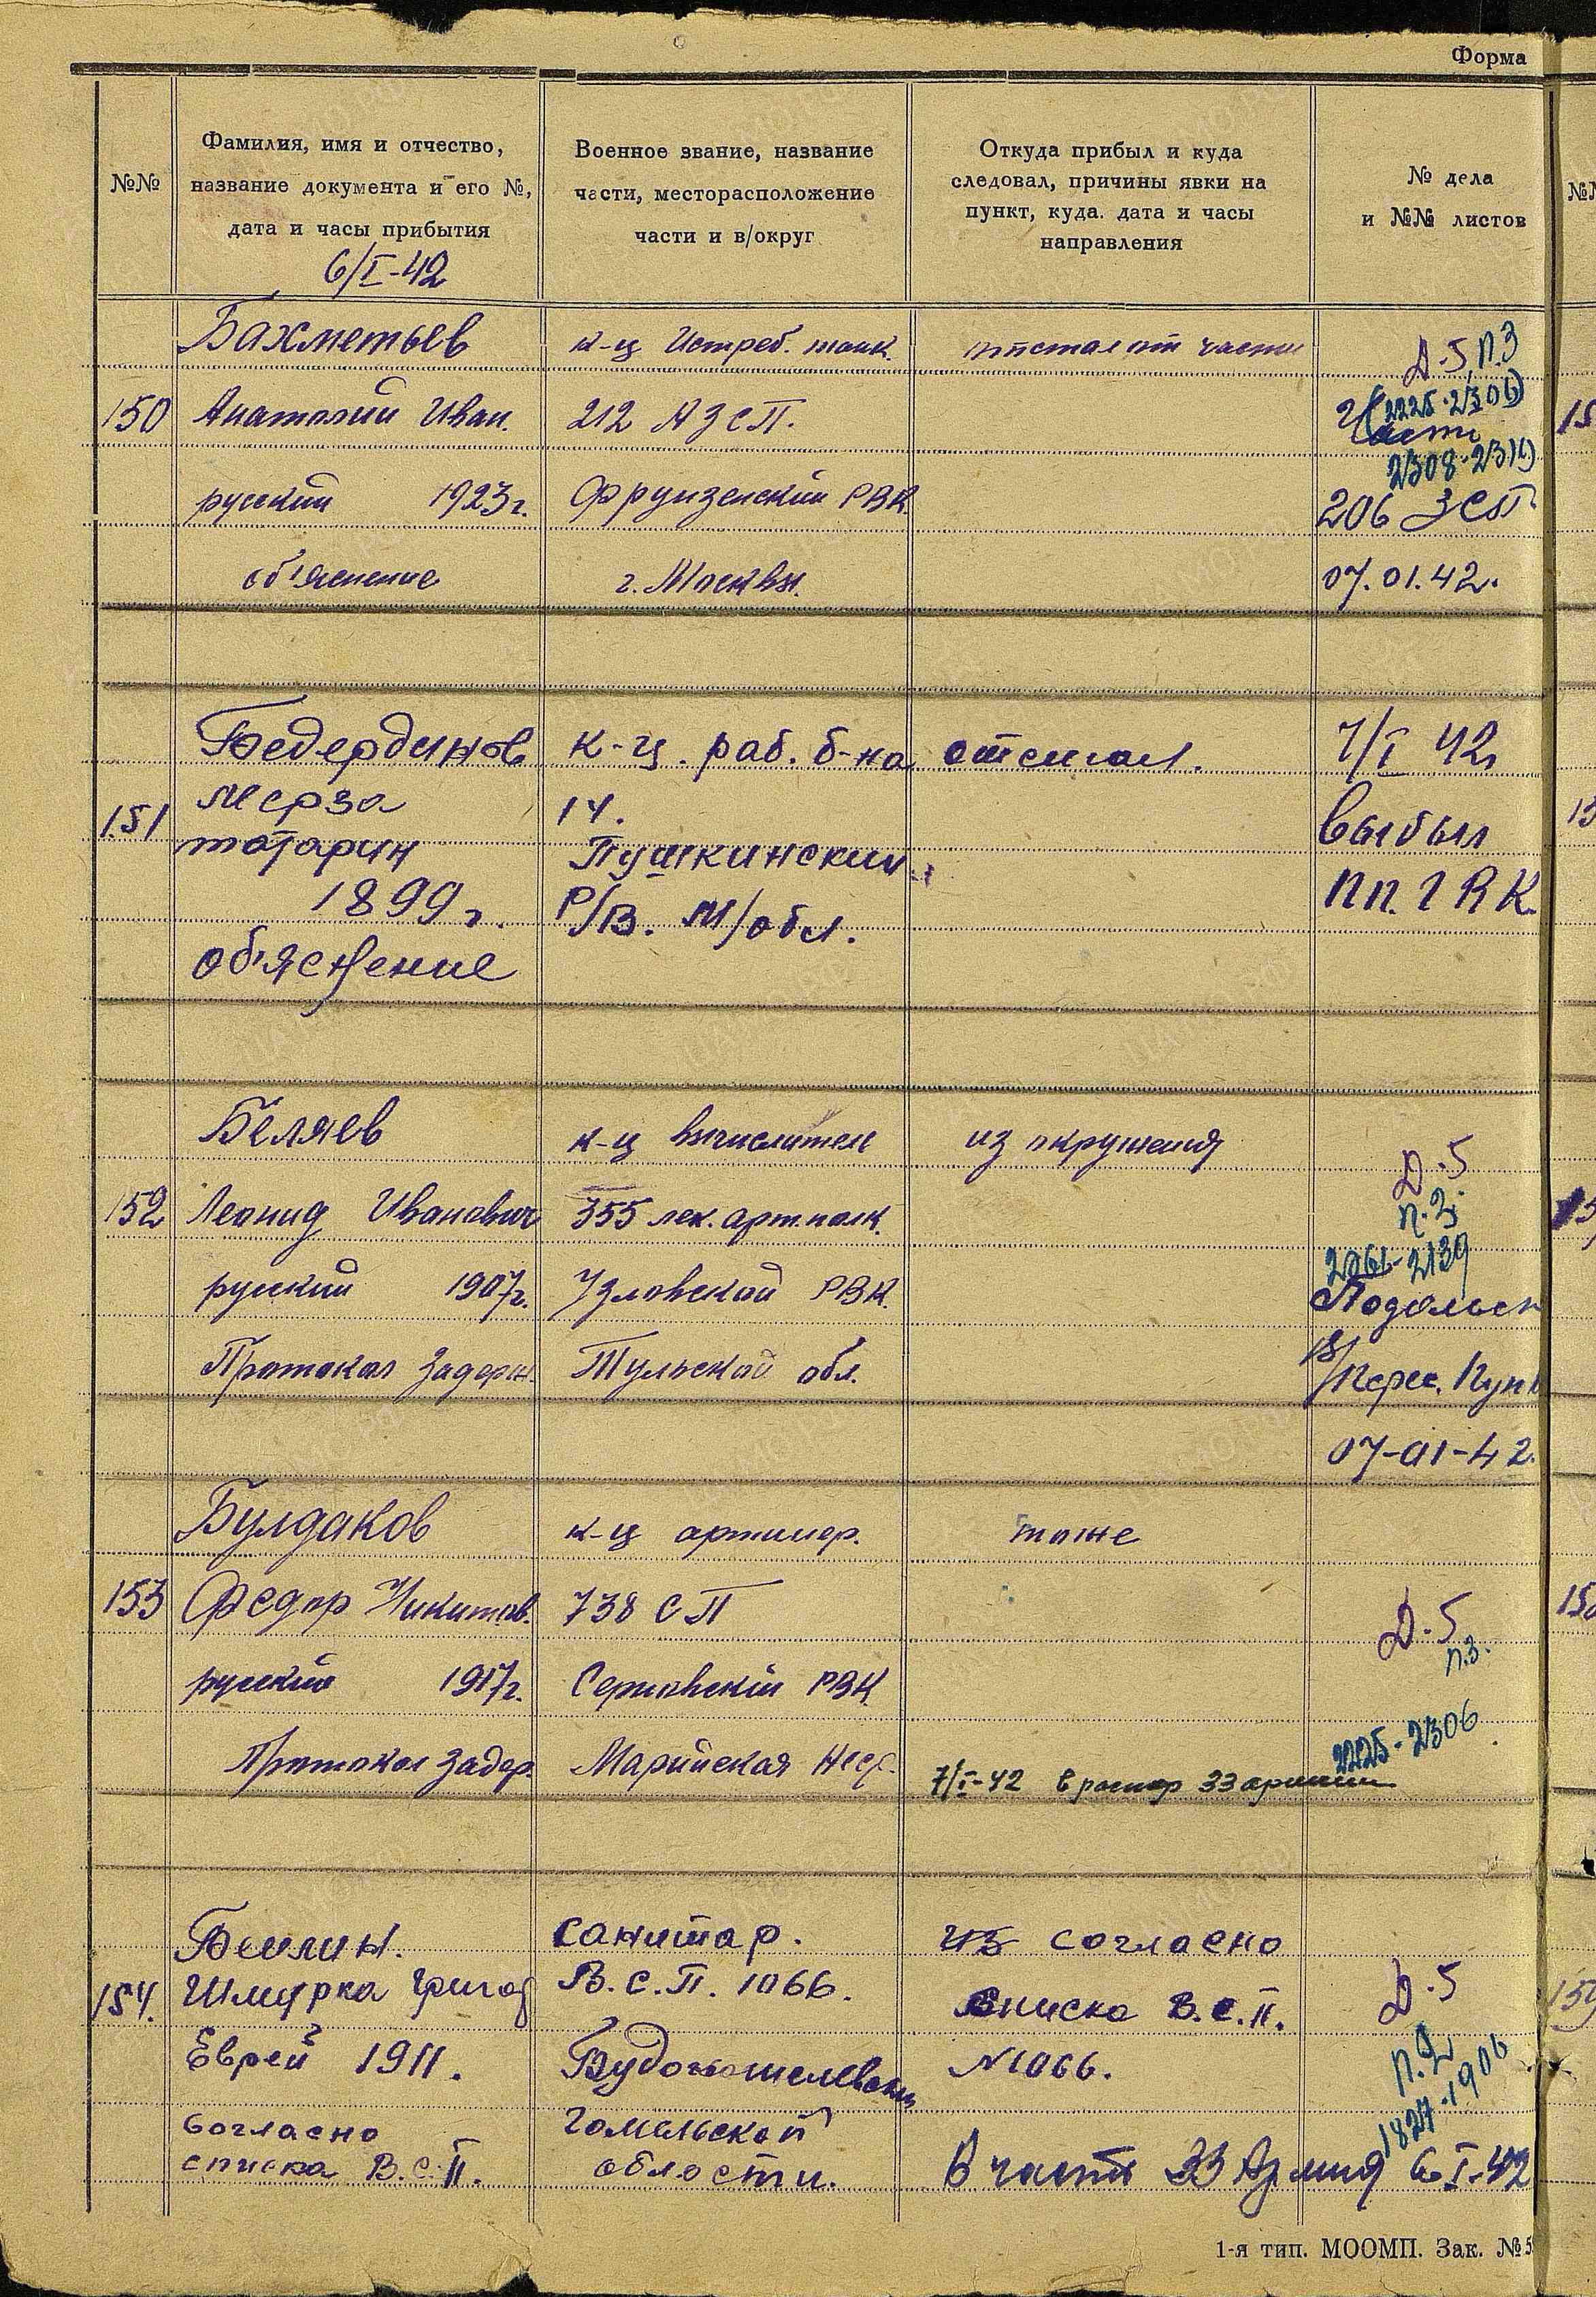 Форма
№№
Фамилия, имя и отчество,
название документа и его №,
дата и часы прибытия
6/I-42
Военное звание, название
части, месторасположение
части и в/округ
Откуда прибыл и куда
следовал, причины явки на
пункт, куда. дата и часы
направления
№ дела
и №№ листов
150
Бахметьев
Анатолий Иван.
русский 1923г.
об'яснение
к-ц Истреб. танк.
212 АЗСП.
Фрунзенский РВК
г. Москвы.
отстал от части
Д.5, п.3
2225-2306
Части
206 ЗСП.
07.01.42.
151
Бедердинов
Мерза
татарин
1899г.
об'яснение
к-ц. раб. б-на
14.
Пушкинский
Р/В. М/обл.
отстал.
7/I 42
выбыл
152
Беляев
Леонид Иванович
русский 1907г.
Протокол задерж.
к-ц вычислитель
355 арт. полк.
Узловской РВК.
Тульской обл.
из окружения
Д.5
п.3
2139
Подольск
Перес. Пунк
07-01-42.
153
Булдаков
Федор Никитов.
русский 1917г.
Протокол задер.
к-ц артилер.
738 СП
РВК
Марийская
тоже
7/I-42 в распор 33 армии
Д.5
п.3.
2225-2306
154.
Беилин.
Григор
Еврей 1911.
согласно
списка В.С.П.
санитар.
В.С.П. 1066.
Гомельской
области.
из согласно
списка В.С.П.
N1066.
Д.5
п.2
1827-1906
В части 33 Армия 6-I-42
1-я тип. МООМП. Зак. № 5